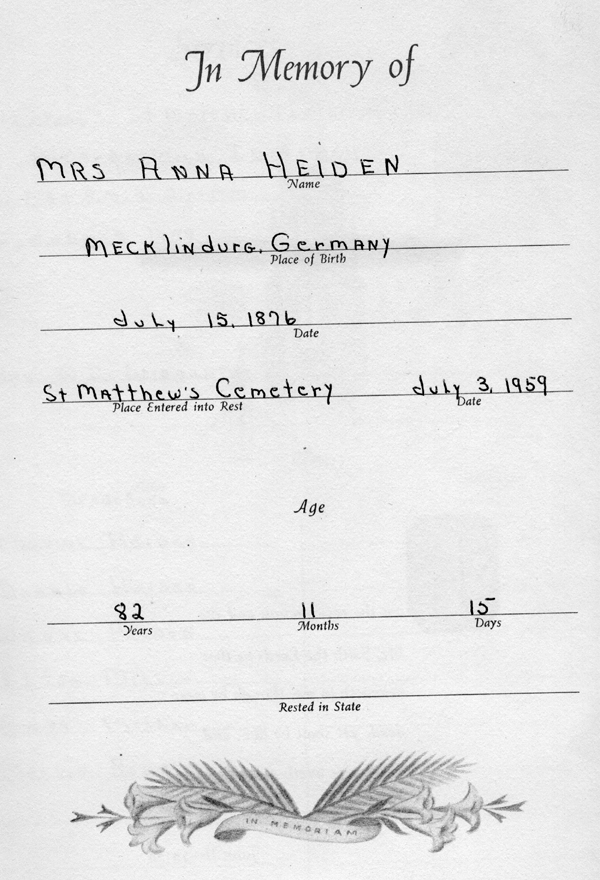 In Memory of
MRS ANNA HEIDEN
Name
MECKlindurg, GermANy
Place of Birth
July 15, 1876
Date
St MAtthew's Cemetery July 3, 1959
Place Entered into Rest Date
Age
82 11 15
Years Months Days
Rested in State
IN MEMORIAM